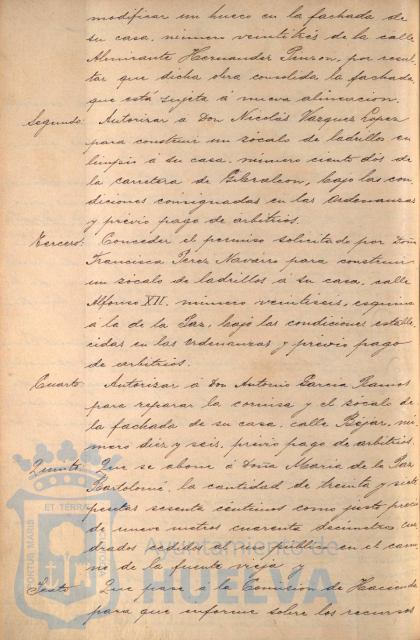 modificar un hueco en la fachada de
su casa, número veintitrés de la calle
Almirante Hernandez Pinzon, por resul-
tar que dicha obra consolida la fachada
que está sujeta á nueva alineacion.
Segundo Autorizar a Don Nicolás Vazquez Lopez
para construir un zócalo de ladrillos en
limpio á su casa número ciento dos de
la carretera de Gibraleon, bajo las con-
diciones consignadas en las Ordenanzas
y prévio pago de arbitrios.
Tercero: Conceder el permiso solicitado por Doña
Francisca Perez Navarro para construir
un zócalo de ladrillos á su casa, calle
Alfonso XII, número veintiseis, esquina
a la de la Paz, bajo las condiciones estable-
cidas en las Ordenanzas y previo pago
de arbitrios.
Cuarto Autorizar á don Antonio Garcia Ramos
para reparar la cornisa y el zócalo de
la fachada de su casa, calle Béjar, nú-
mero diez y seis, previo pago de arbitrios.
Quinto Que se abone á Doña Maria de la Paz
Bartolomé, la cantidad de treinta y siete
pesetas sesenta céntimos como justo precio
de nueve metros cuarenta decimetros cua-
drados cedidos al uso público en el cami-
no de la fuente vieja y
Sexto Que pase á la Comision de Hacienda
para que informe sobre los recursos
Ayuntamiento de
HUELVA
PORTUS MARIS
ET TERRAE